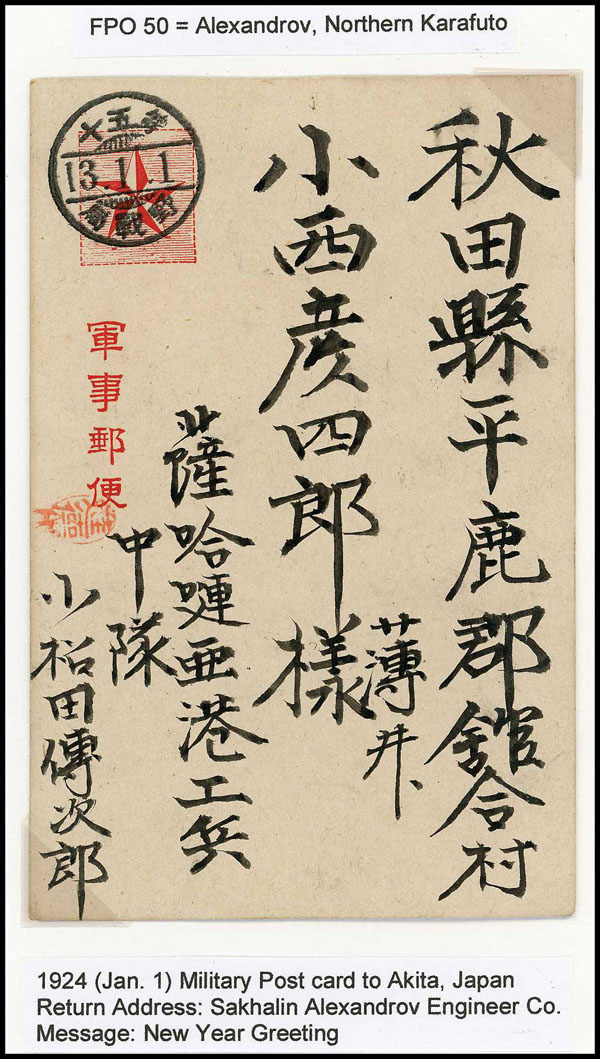 FPO 50 = Alexandrov, Northern Karafuto
13.1.1
軍事郵便
秋田縣平鹿郡舘合村
薄井
小西彦四郎様
北薩哈嗹亜港工兵
中隊
小柗田傳次郎
1924 (Jan. 1) Military Post card to Akita, Japan
Return Address: Sakhalin Alexandrov Engineer Co.
Message: New Year Greeting